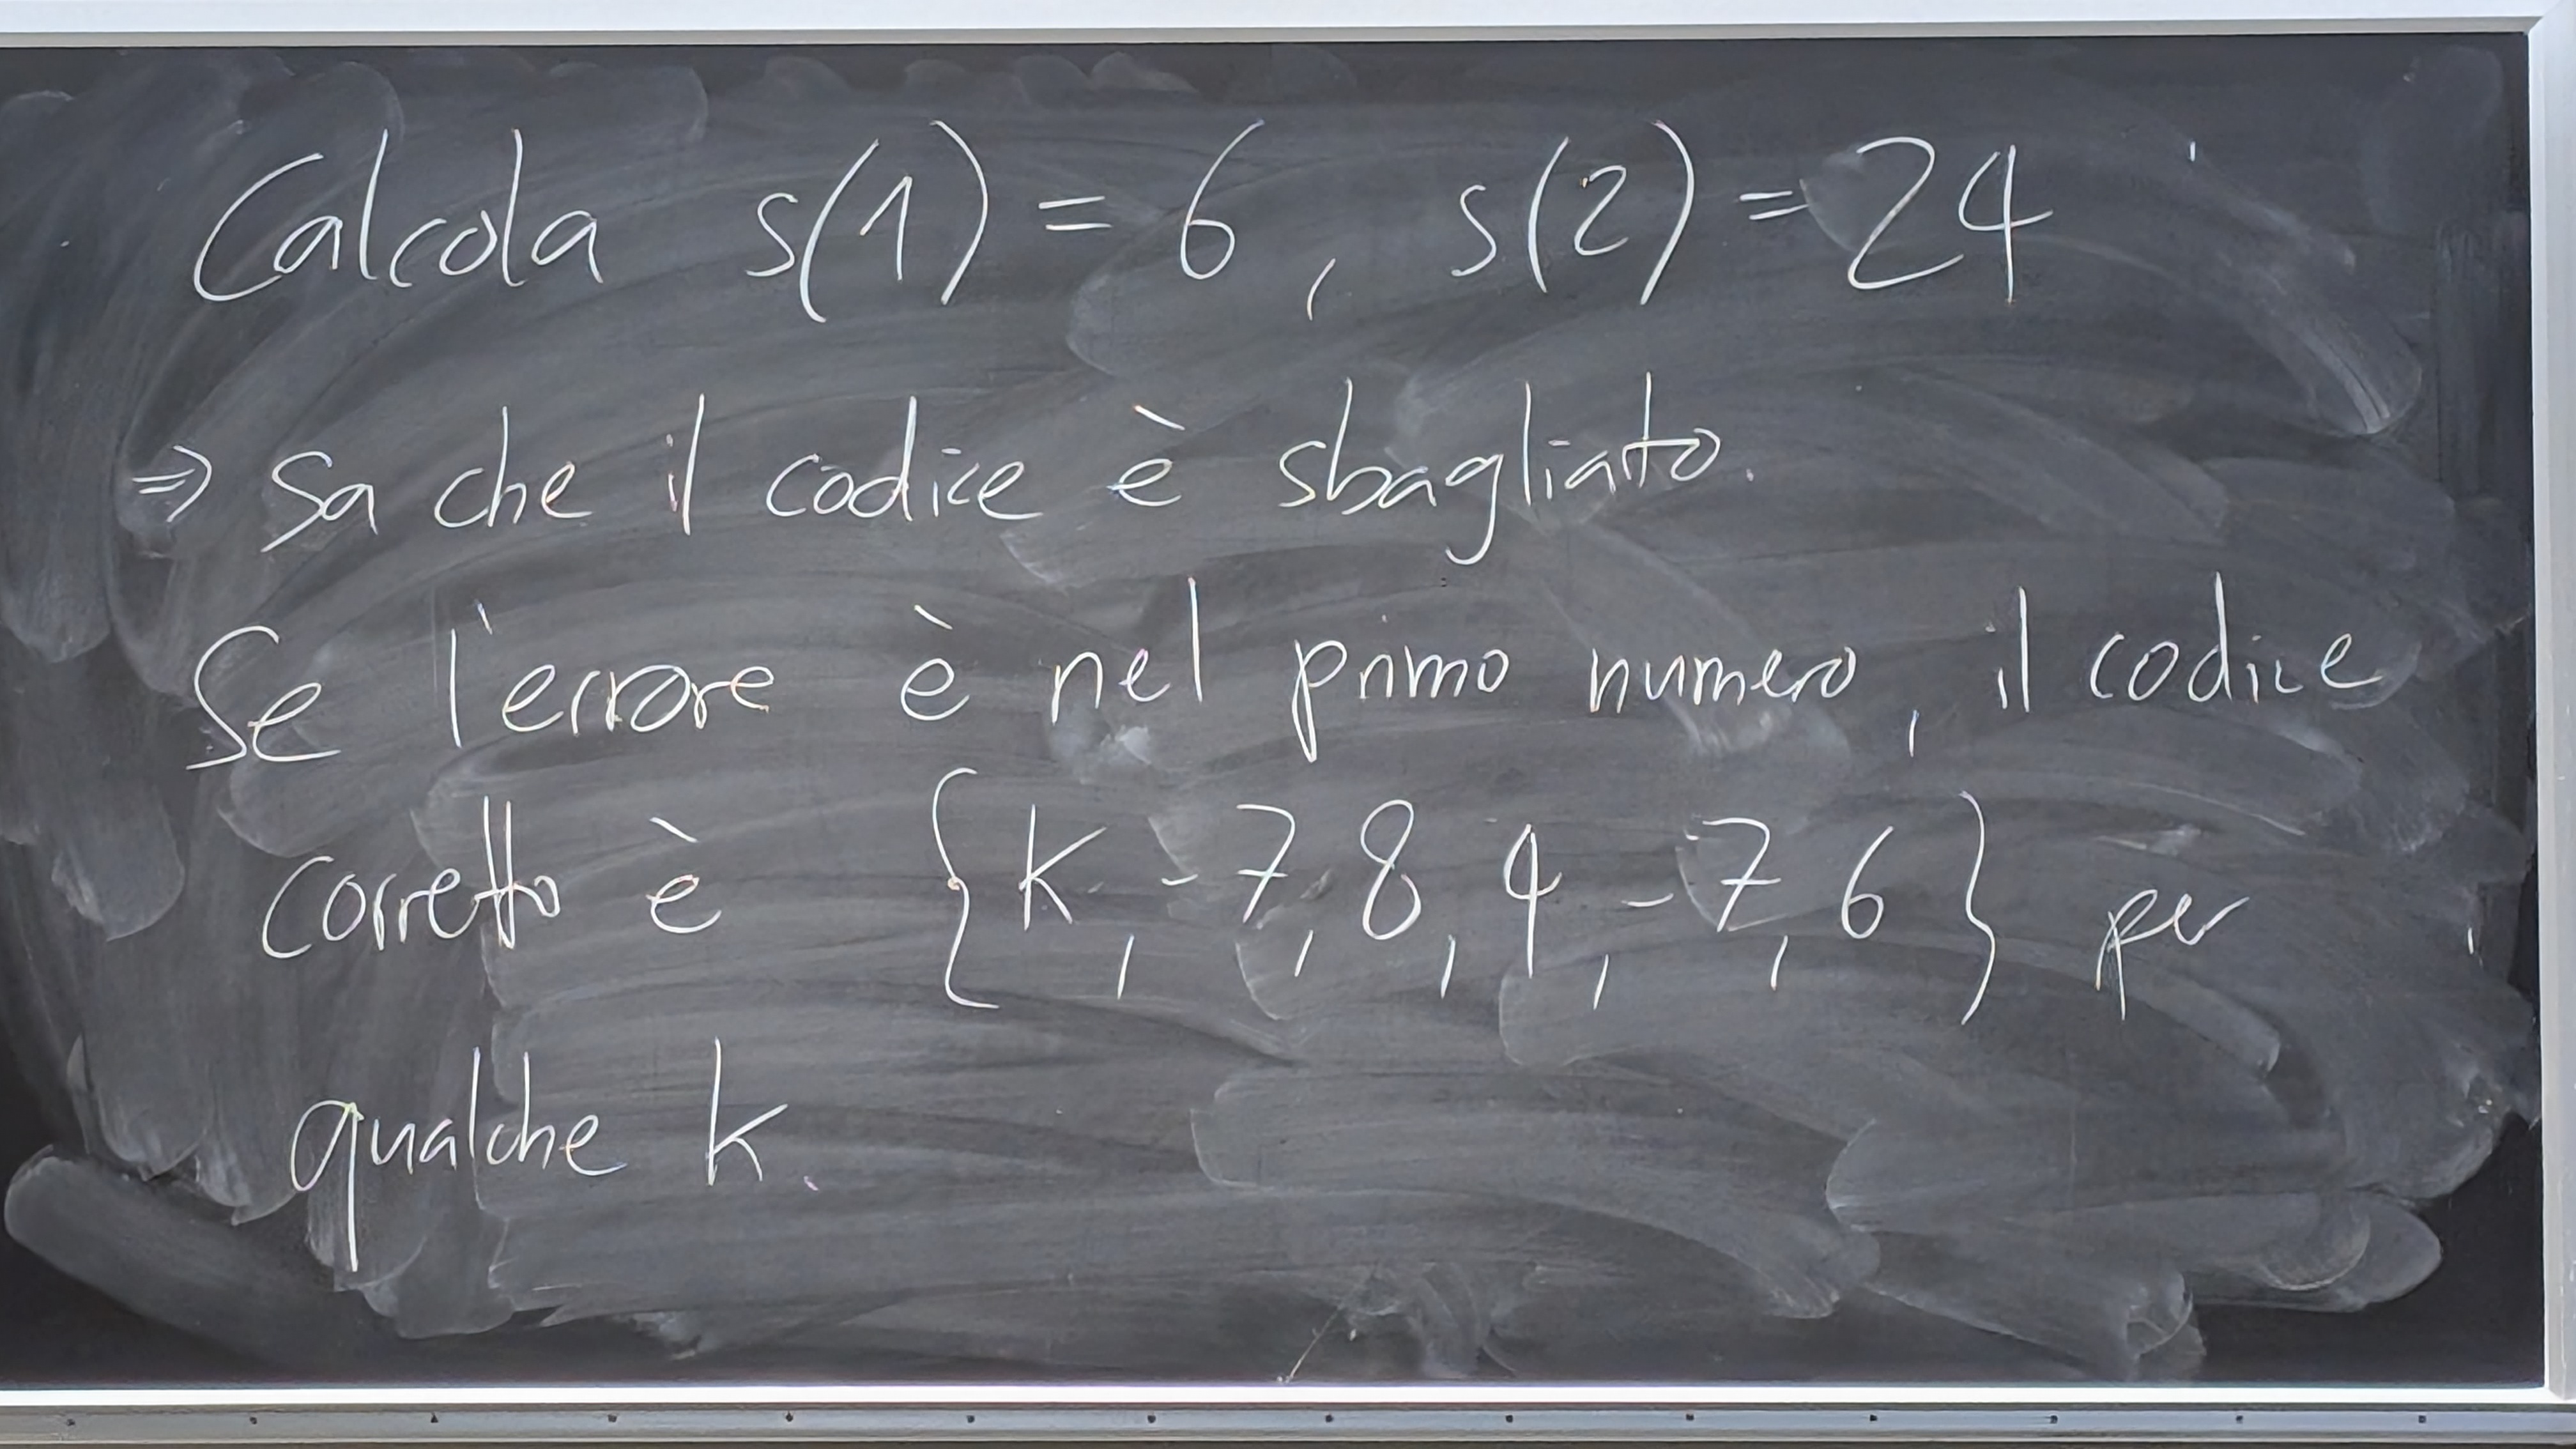 Calcola s(1) = 6, s(2) = 24
⇒ Sa che il codice è sbagliato.
Se l'errore è nel primo numero, il codice
corretto è {k, -7, 8, 4, -7, 6} per
qualche k.